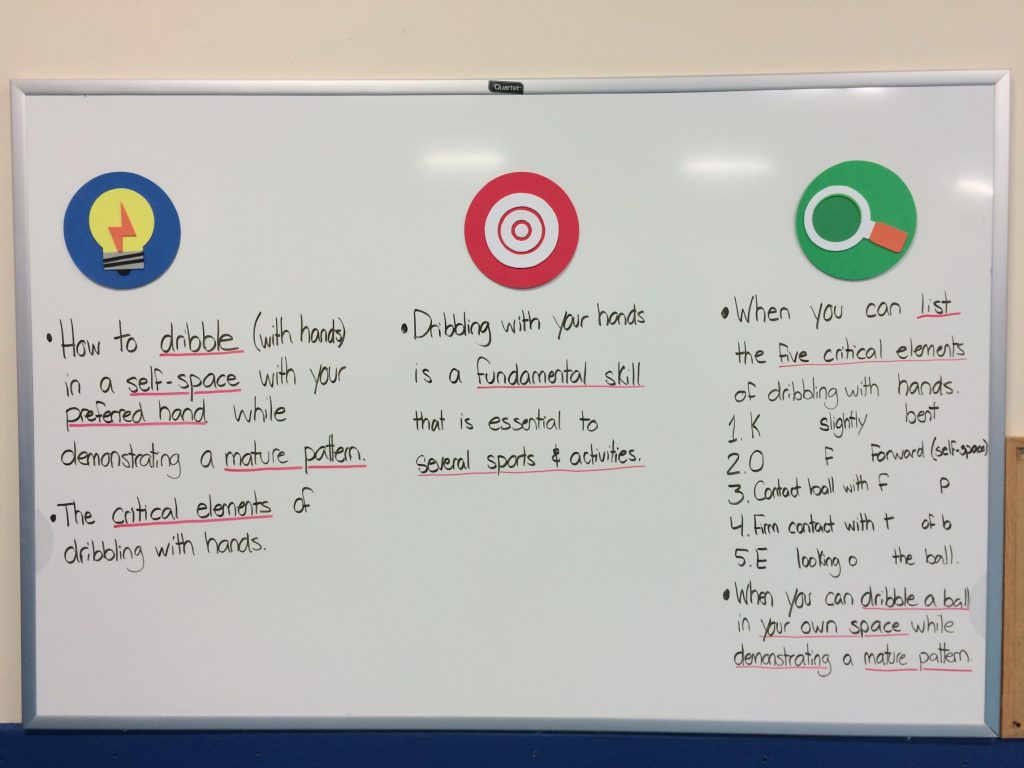 Quartet
• How to dribble (with hands)
in a self-space with your
preferred hand while
demonstrating a mature pattern.
• The critical elements of
dribbling with hands.
• Dribbling with your hands
is a fundamental skill
that is essential to
several sports & activities.
• When you can list
the five critical elements
of dribbling with hands.
1. K slightly bent
2. O F Forward (self-space)
3. Contact ball with f p
4. Firm contact with t of b
5. E looking o the ball.
• When you can dribble a ball
in your own space while
demonstrating a mature pattern.